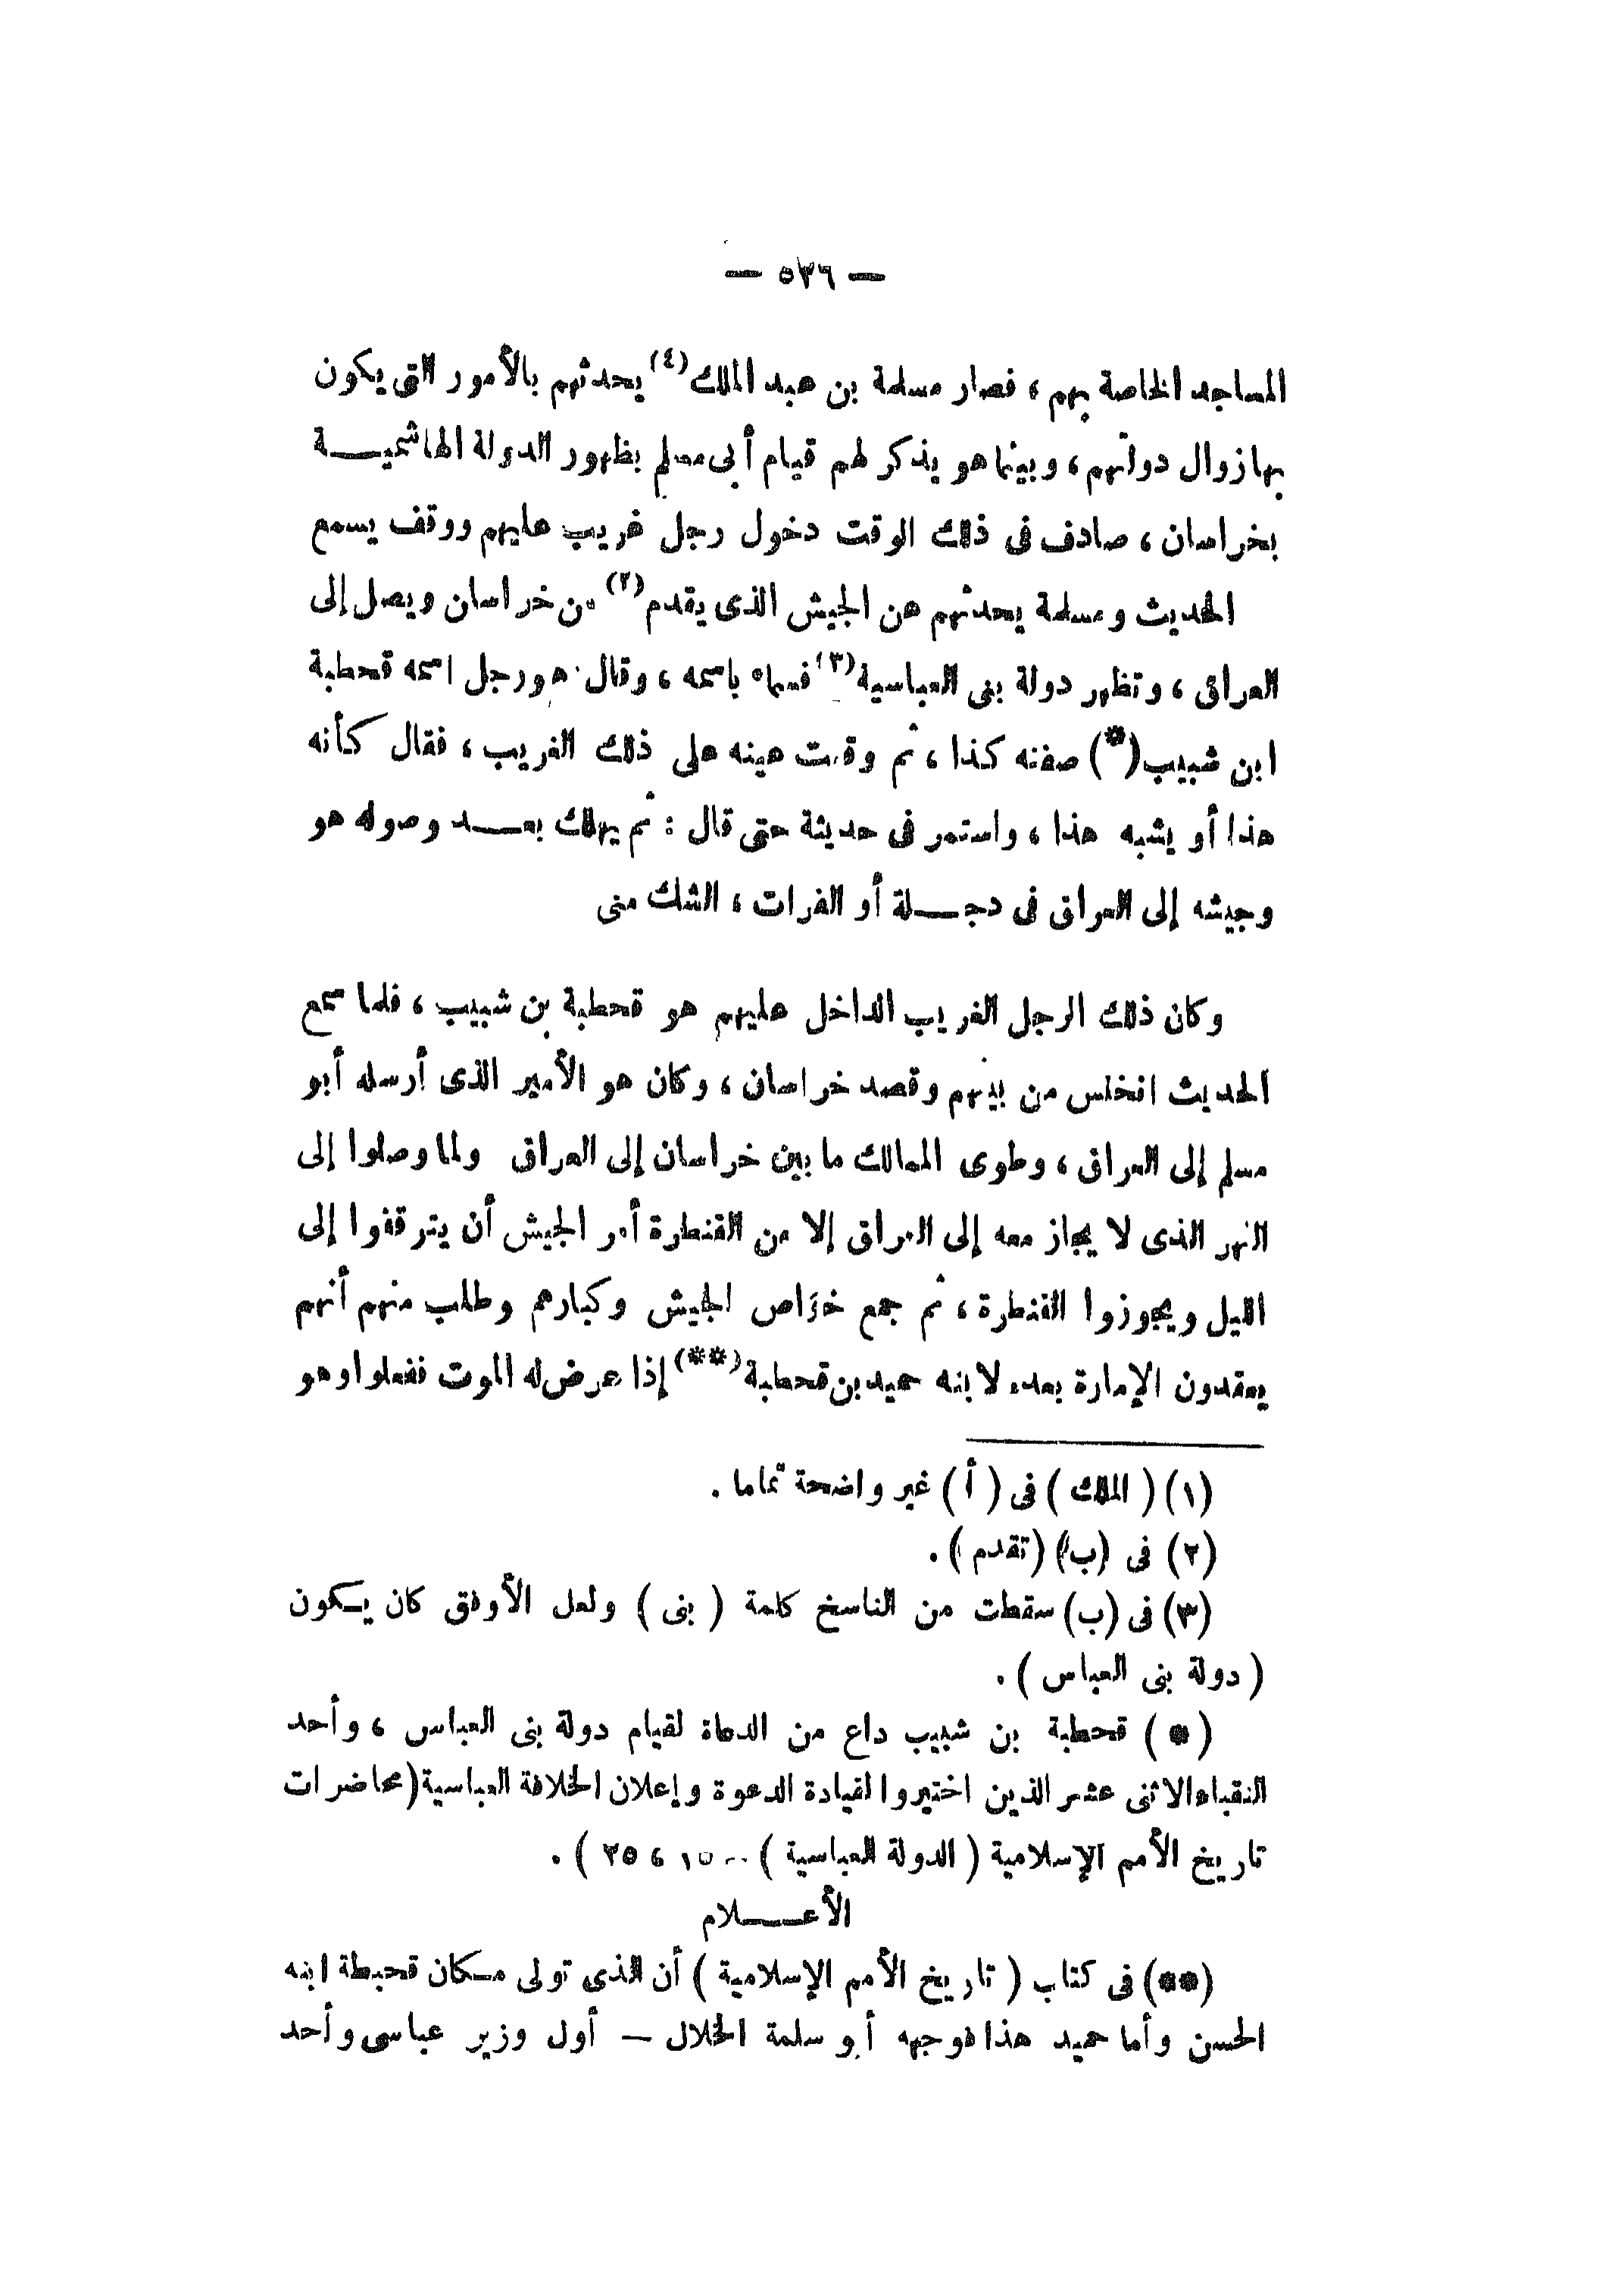 — ٥٣٦ —
المساجد الخاصة بهم ، فصار مسلمة بن عبد الملك (٤) يحدثهم بالأمور التى يكون
بها زوال دولتهم ، وبينما هو يذكر لهم قيام أبى مسلم بظهور الدولة الهاشميـــة
بخراسان ، صادف فى ذلك الوقت دخول رجل غريب عليهم ووقف يسمع
الحديث ومسلمة يحدثهم عن الجيش الذى يقدم (٢) من خراسان ويصل إلى
العراق ، وتظهر دولة بنى العباسية (٣) فسماه باسمه ، وقال هو رجل اسمه قحطبة
ابن شبيب (*) صفته كذا ، ثم وقعت عينه على ذلك الغريب ، فقال كأنه
هذا أو يشبه هذا ، واستمر فى حديثة حتى قال : ثم يهلك بعـــد وصوله هو
وجيشه إلى العراق فى دجـــلة أو الفرات ، الشك منى
وكان ذلك الرجل الغريب الداخل عليهم هو قحطبة بن شبيب ، فلما سمع
الحديث انخلس من بينهم وقصد خراسان ، وكان هو الأمير الذى أرسله أبو
مسلم إلى العراق ، وطوى الممالك ما بين خراسان إلى العراق ولما وصلوا إلى
النهر الذى لا يجاز معه إلى العراق إلا من القنطرة أمر الجيش أن يترقفوا إلى
الليل ويجوزوا القنطرة ، ثم جمع خواص الجيش وكبارهم وطلب منهم أنهم
يعقدون الإمارة بعده لابنه حميد بن قحطبة (**) إذا عرض له الموت ففعلوا وهو
(١) ( الملك ) فى ( أ ) غير واضحة تماما .
(٢) فى (ب) (تقدم) .
(٣) فى (ب) سقطت من الناسخ كلمة ( بنى ) ولعل الأوفق كان يـكون
( دولة بنى العباس ) .
( * ) قحطبة بن شبيب داع من الدعاة لقيام دولة بنى العباس ، وأحد
النقباء الاثنى عشر الذين اختيروا لقيادة الدعوة وإعلان الخلافة العباسية (محاضرات
تاريخ الأمم الإسلامية ( الدولة العباسية ) ١٥ ، ٢٥ ) .
الأعـــلام
(**) فى كتاب ( تاريخ الأمم الإسلامية ) أن الذى تولى مـكان قحبطة ابنه
الحسن وأما حميد هذا فوجهه أبو سلمة الخلال — أول وزير عباسى وأحد